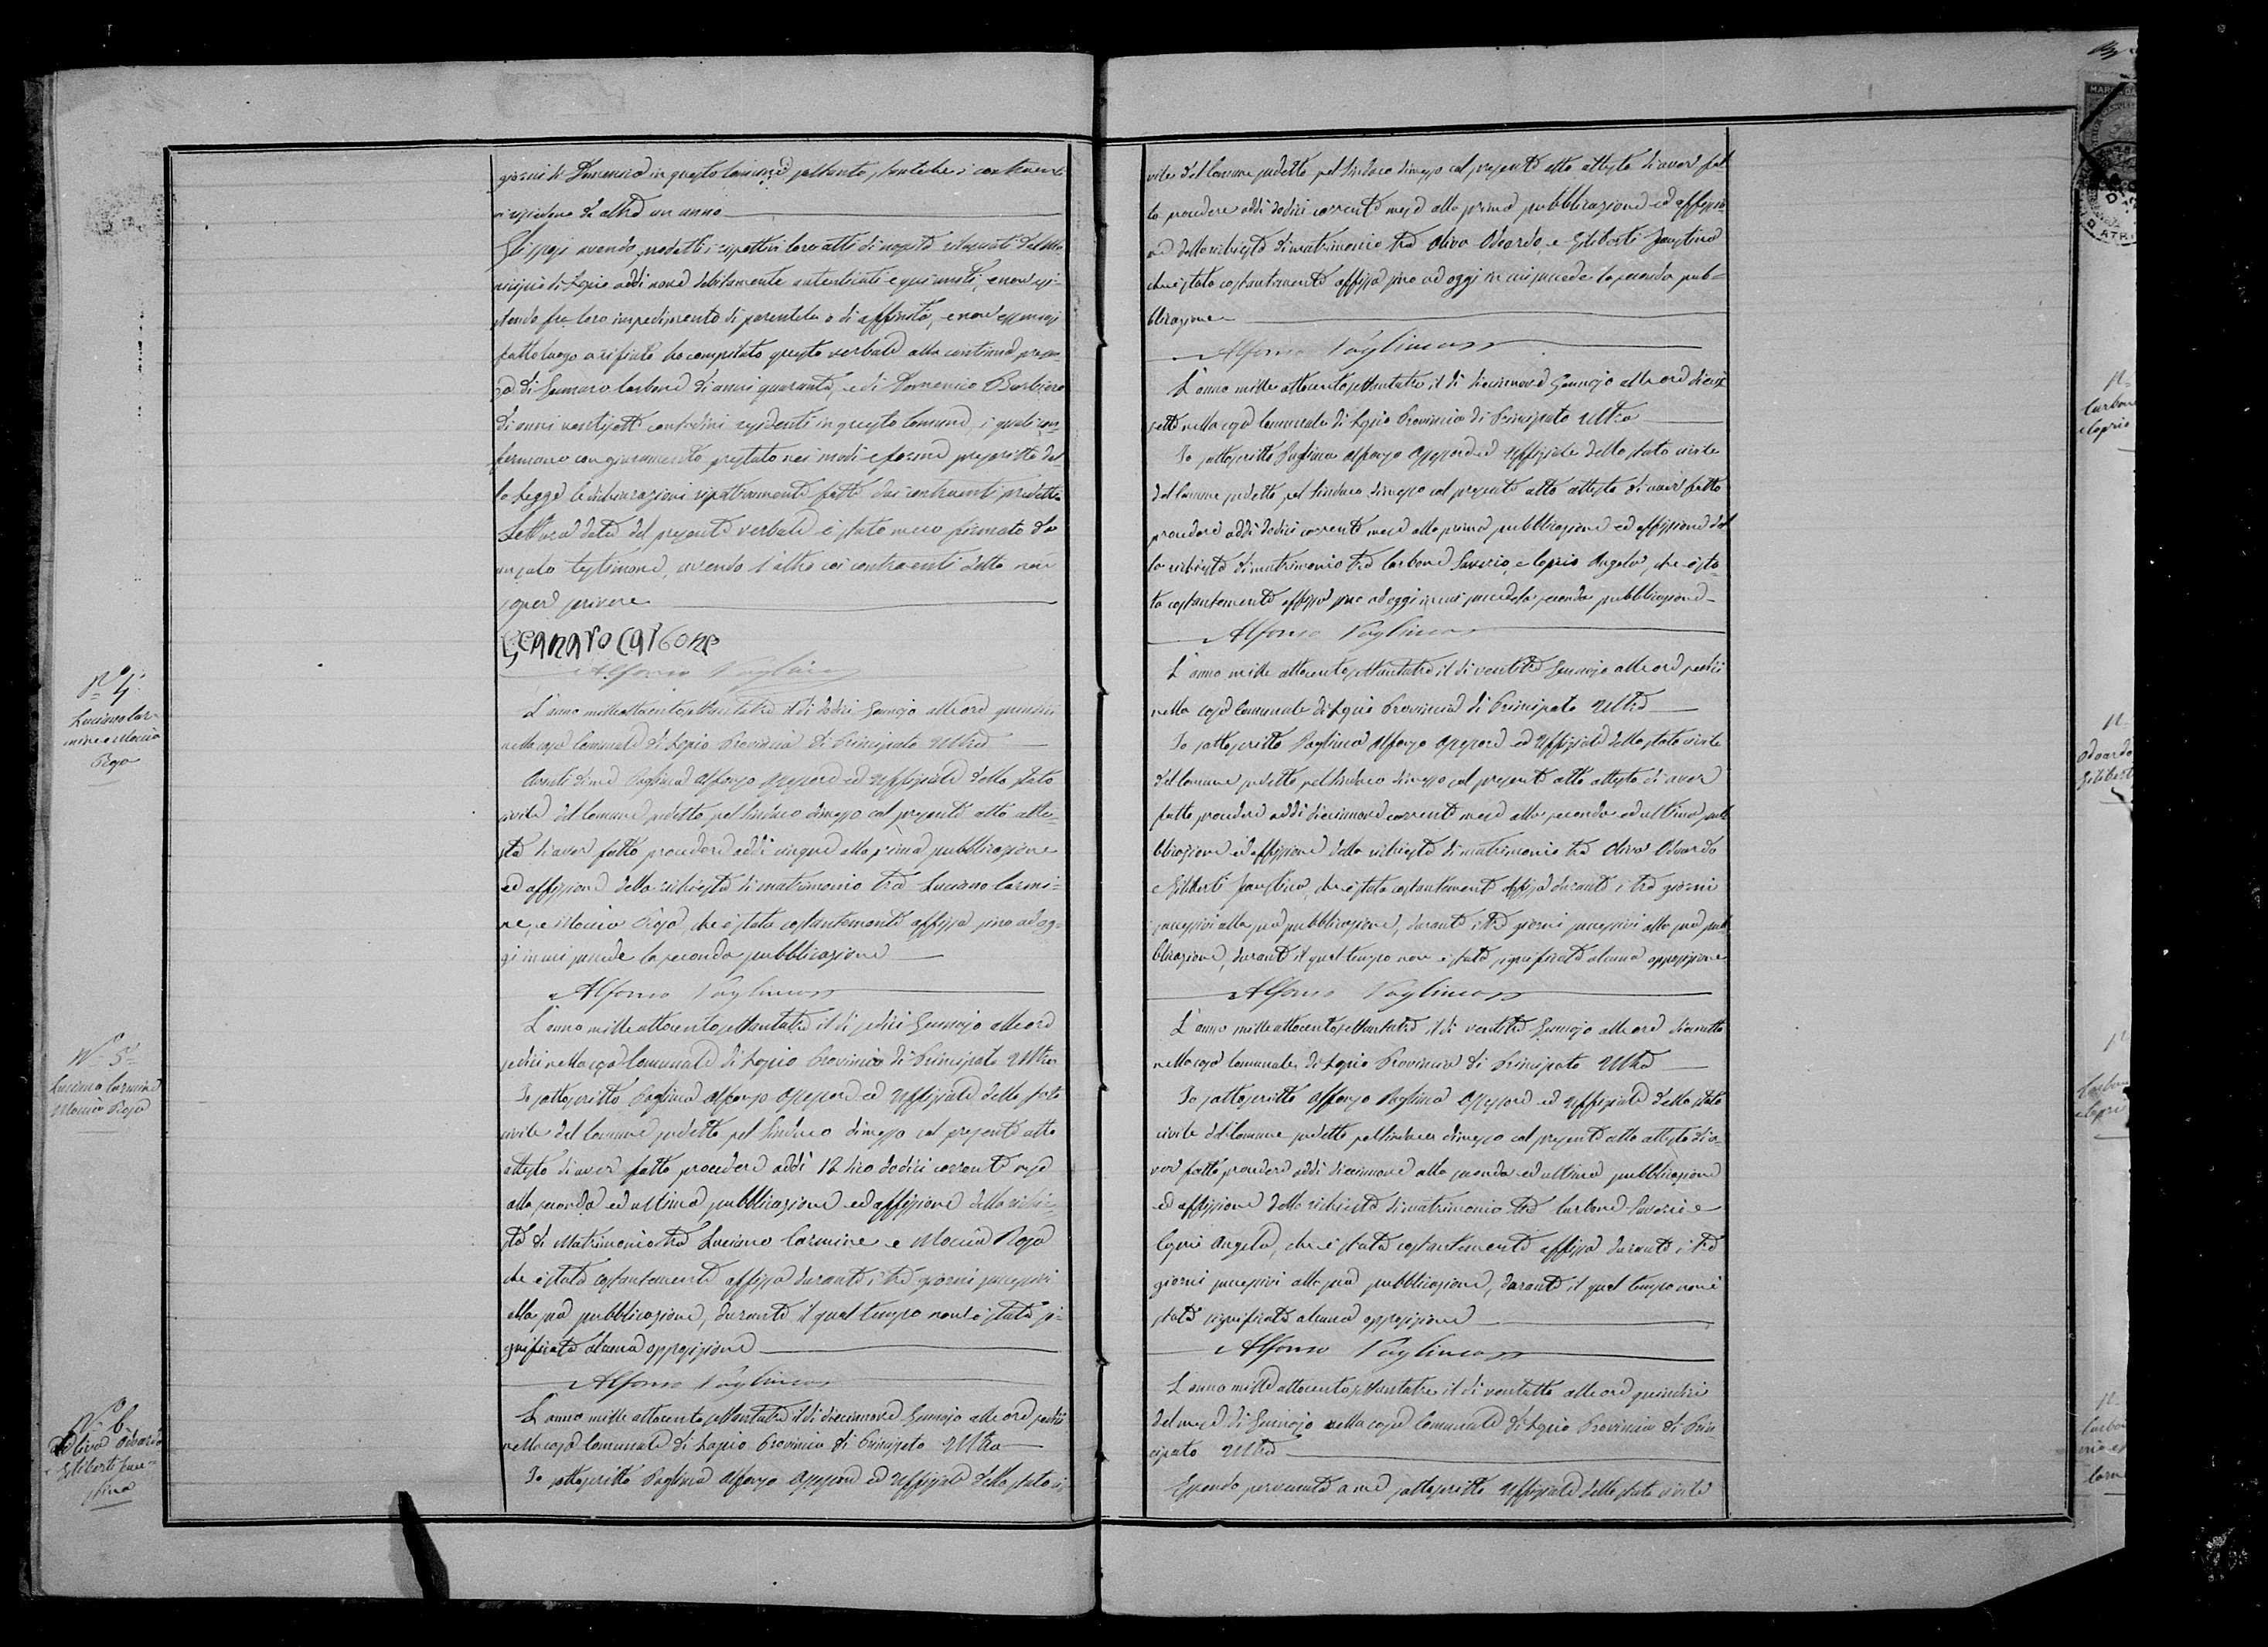 giorni di Domenica in questo Comune soltanto, stanteche i contraenti
vi risiedono da oltre un anno
Gli sposi avendo prodotti i rispettivi loro atti di nascita rilasciati dal Mu-
nicipio di Lapio addì nove debitamente autenticati e qui uniti, e non esi-
stendo fra loro impedimento di parentela o di affinità, e non essendosi
fatto luogo a rifiuto ho compilato questo verbale alla continua presen-
za di Gennaro Carbone di anni quaranta, e di Domenico Barbiero
di anni ventisette contadini residenti in questo Comune, i quali con-
fermano con giuramento prestato nei modi e forme prescritte dal-
la Legge le dichiarazioni rispettivamente fatte dai contraenti predetti
Lettura data del presente verbale è stato meco firmato da
un solo testimone, avendo l'altro coi contraenti detto non
sapere scrivere
Gennaro carbone
Alfonso Pagliuca
N.° 4.
Luciano Car-
mine e Moccia
Rosa
L'anno milleottocentosettantatre il dì dodici Gennajo alle ore quindici
nella casa Comunale di Lapio Provincia di Principato Ultra
Avanti di me Pagliuca Alfonzo Assessore ed Uffiziale dello stato
civile del Comune sudetto pel Sindaco dimesso col presente atto atte-
sto di aver fatto procedere addì cinque alla prima pubblicazione
ed affissione della richiesta di matrimonio tra Luciano Carmi-
ne, e Moccia Rosa, che è stata costantemente affissa sino ad og-
gi in cui succede la seconda pubblicazione
Alfonso Pagliuca
N.° 5.°
Luciano Carmine
Moccia Rosa
L'anno milleottocentosettantatre il dì sedici Gennajo alle ore
sedici nella casa Comunale di Lapio Provincia di Principato Ultra
Io sottoscritto Pagliuca Alfonzo Assessore ed Uffiziale dello stato
civile del Comune sudetto pel Sindaco dimesso col presente atto
attesto di aver fatto procedere addì 12 dico dodici corrente mese
alla seconda ed ultima pubblicazione ed affissione della richie-
sta di Matrimonio tra Luciano Carmine e Moccia Rosa
che è stata costantemente affissa durante i tre giorni successivi
alla sua pubblicazione, durante il qual tempo non è stata si-
gnificata alcuna opposizione
Alfonso Pagliuca
N.° 6
Oliva Odoardo
e Giliberti Fau-
stina
L'anno mille ottocentosettantatre il dì diecinnove Gennajo alle ore sedici
nella casa Comunale di Lapio Provincia di Principato Ultra
Io sottoscritto Pagliuca Alfonzo Assessore ed Uffiziale dello stato ci-
vile del Comune sudetto pel Sindaco dimesso col presente atto attesto di aver fat-
to procedere addì dodici corrente mese alla prima pubblicazione ed affissio-
ne della richiesta di matrimonio tra Oliva Odoardo, e Giliberti Faustina
che è stata costantemente affissa sino ad oggi in cui succede la seconda pub-
blicazione
Alfonso Pagliuca
L'anno mille ottocentosettantatre il dì diecinnove Gennajo alle ore diecis-
sette nella casa Comunale di Lapio Provincia di Principato Ultra
Io sottoscritto Pagliuca Alfonzo Assessore ed Uffiziale dello stato civile
del Comune sudetto pel Sindaco dimesso col presente atto attesto di aver fatto
procedere addì dodici corrente mese alla prima pubblicazione ed affissione del-
la richiesta di matrimonio tra Carbone Saverio, e Caprio Angela, che è sta-
ta costantemente affissa sino ad oggi in cui succede la seconda pubblicazione
Alfonso Pagliuca
L'anno mille ottocentosettantatre il dì ventitre Gennajo alle ore sedici
nella casa Comunale di Lapio Provincia di Principato Ultra
Io sottoscritto Pagliuca Alfonzo Assessore ed Uffiziale dello stato civile
del Comune sudetto pel Sindaco dimesso col presente atto attesto di aver
fatto procedere addì diecinnove corrente mese alla seconda ed ultima pub-
blicazione ed affissione della richiesta di matrimonio tra Oliva Odoardo
e Giliberti Faustina, che è stata costantemente affissa durante i tre giorni
successivi alla sua pubblicazione, durante i tre giorni successivi alla sua pub-
blicazione, durante il qual tempo non è stata significata alcuna opposizione
Alfonso Pagliuca
L'anno mille ottocentosettantatre il dì ventitre Gennajo alle ore diecisette
nella casa Comunale di Lapio Provincia di Principato Ultra
Io sottoscritto Alfonzo Pagliuca Assessore ed Uffiziale dello stato
civile del Comune sudetto pel Sindaco dimesso col presente atto attesto di a-
ver fatto procedere addì diecinnove alla seconda ed ultima pubblicazione
ed affissione della richiesta di matrimonio tra Carbone Saverio e
Caprio Angela, che è stata costantemente affissa durante i tre
giorni successivi alla sua pubblicazione, durante il qual tempo non è
stata significata alcuna opposizione
Alfonso Pagliuca
L'anno mille ottocentosettantatre il dì ventotto alle ore quindici
del mese di Gennajo nella casa Comunale di Lapio Provincia di Prin-
cipato Ultra
Essendo pervenuta a me sottoscritto Uffiziale dello stato civile